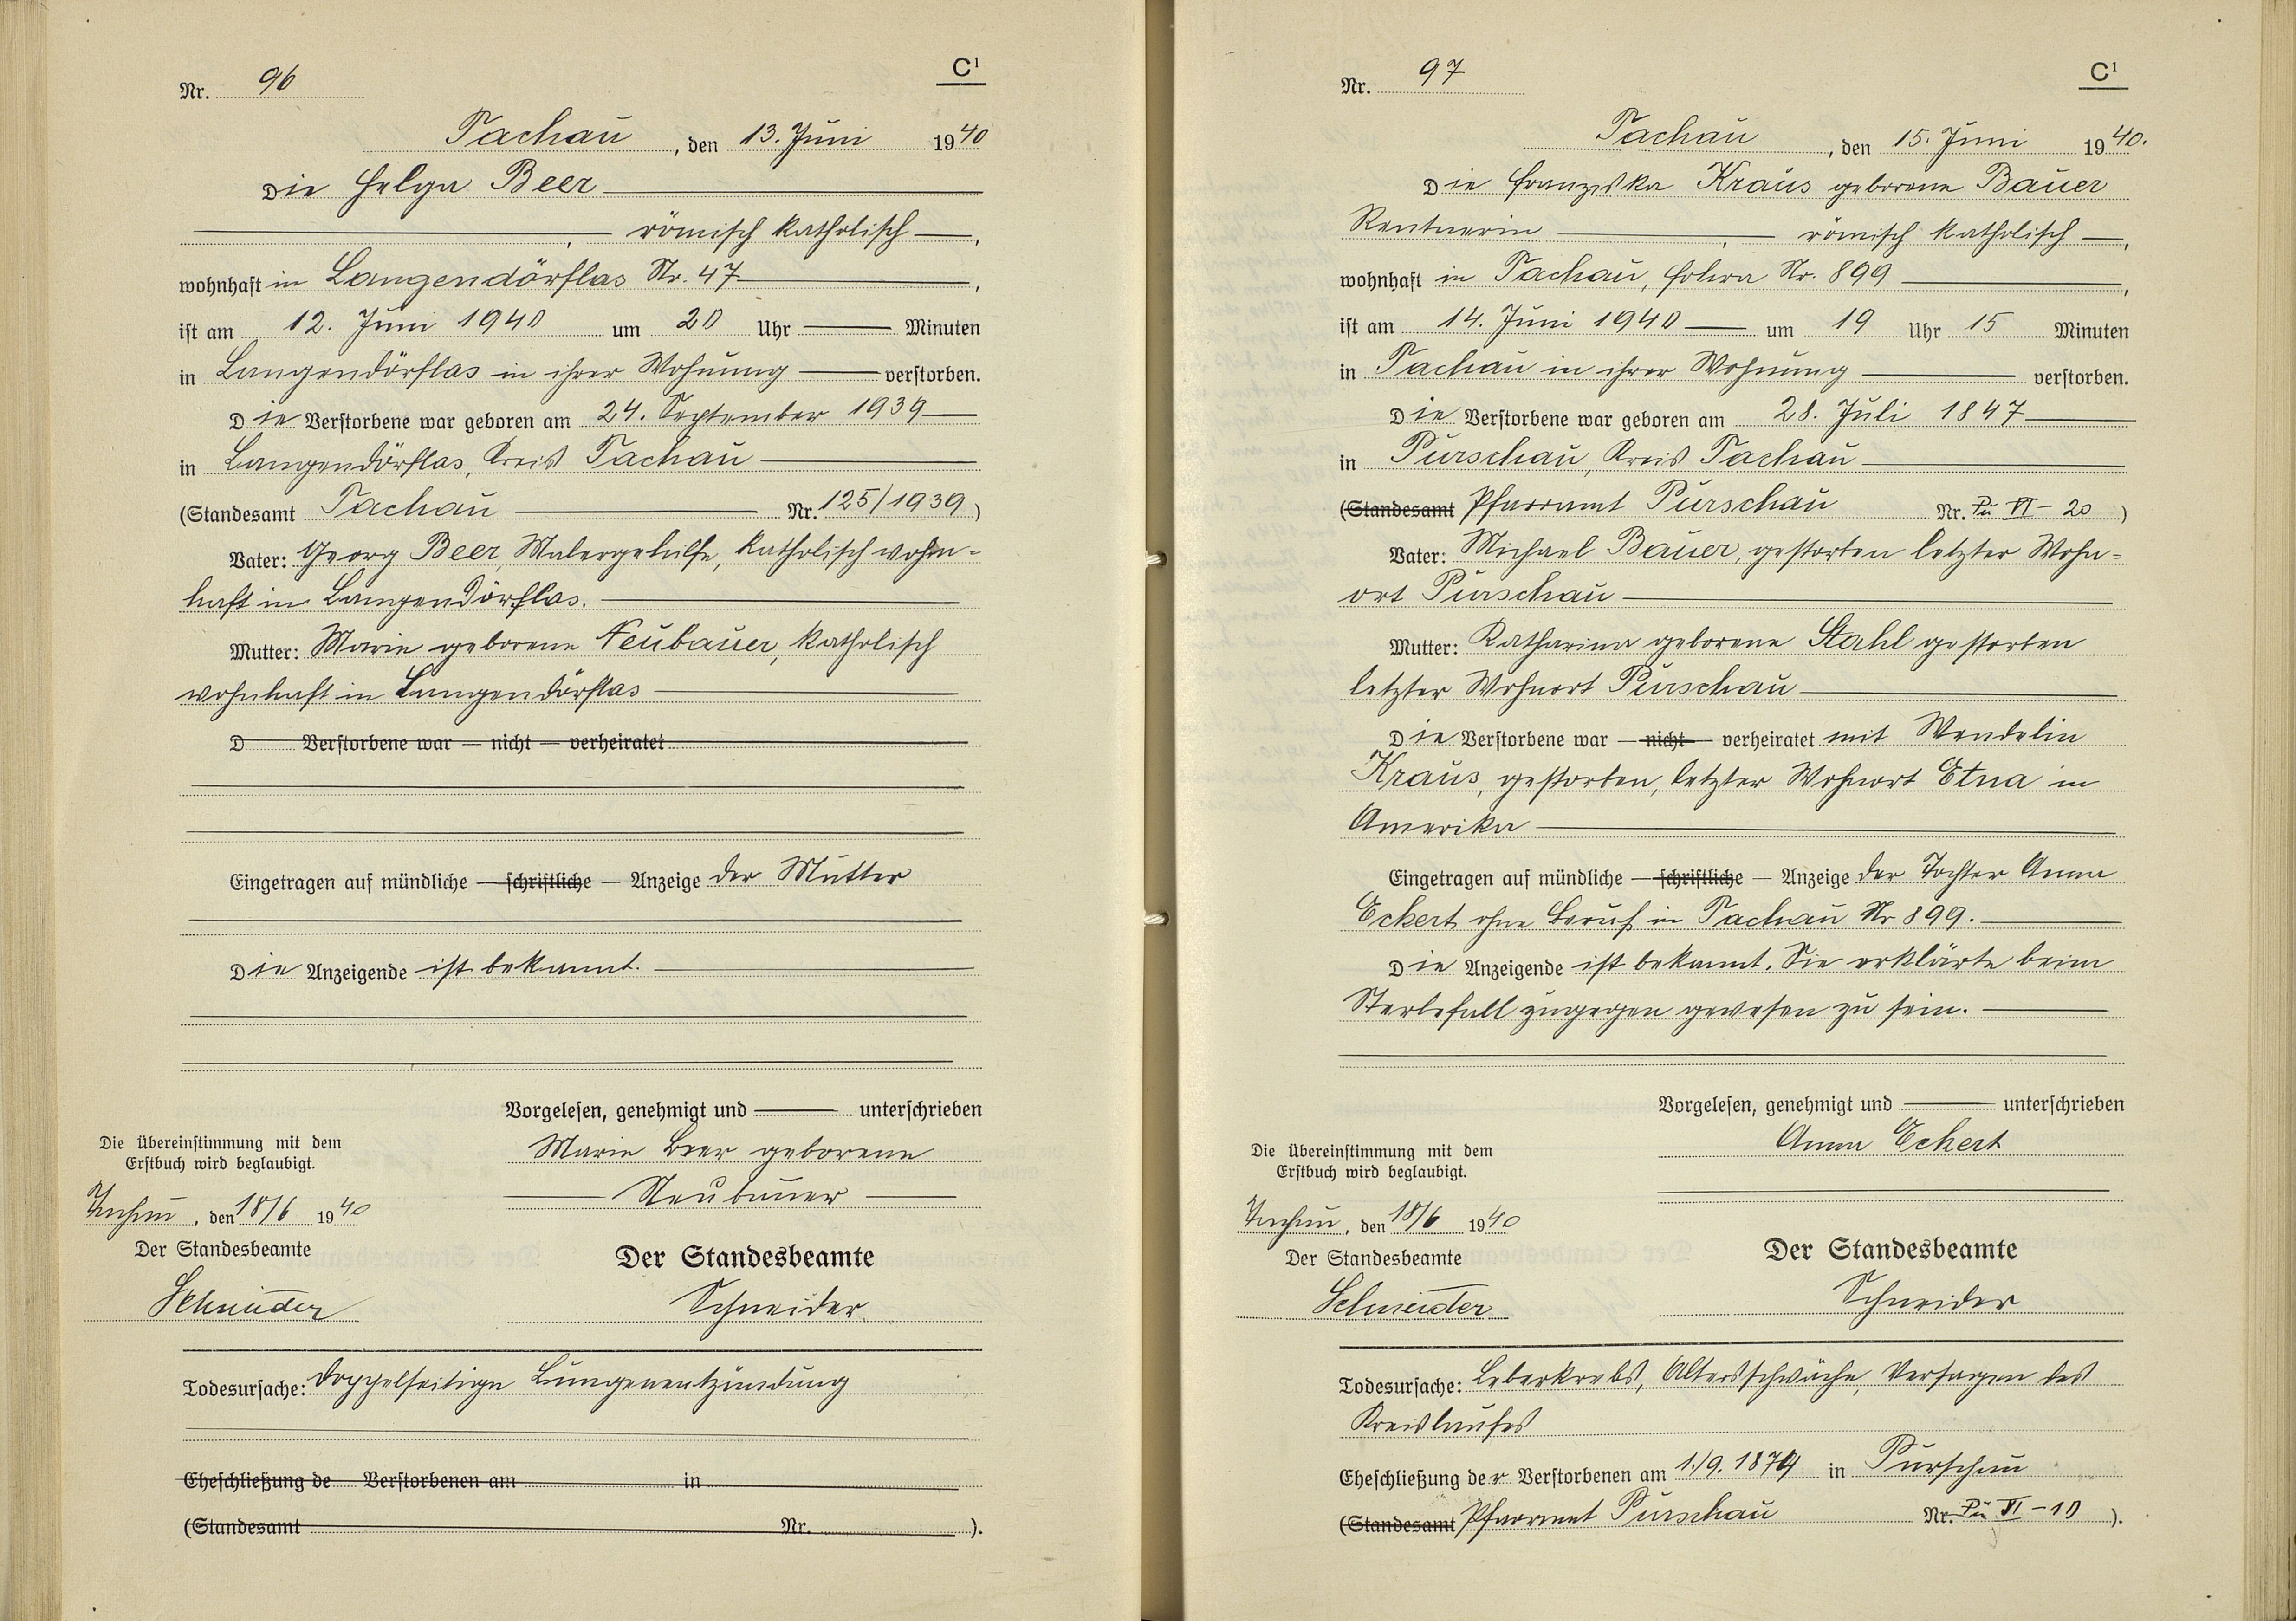 Nr. 96
C¹
Tachau, den 13. Juni 1940
Die Helga Beer
römisch katholisch,
wohnhaft in Langendörflas Nr. 47,
ist am 12. Juni 1940 um 20 Uhr Minuten
in Langendörflas in ihrer Wohnung verstorben.
Die Verstorbene war geboren am 24. September 1939
in Langendörflas, Kreis Tachau
(Standesamt Tachau Nr. 125/1939)
Vater: Georg Beer, Malergehilfe, katholisch wohn-
haft in Langendörflas.
Mutter: Marie geborene Neubauer, katholisch
wohnhaft in Langendörflas
D Verstorbene war — nicht — verheiratet
Eingetragen auf mündliche — schriftliche — Anzeige der Mutter
Die Anzeigende ist bekannt.
Vorgelesen, genehmigt und unterschrieben
Marie Beer geborene
Neubauer
Die Übereinstimmung mit dem
Erstbuch wird beglaubigt.
Tachau, den 18/6 1940
Der Standesbeamte
Schneider
Der Standesbeamte
Schneider
Todesursache: doppelseitige Lungenentzündung
Eheschließung de Verstorbenen am in
(Standesamt Nr. ).
Nr. 97
C¹
Tachau, den 15. Juni 1940.
Die Franziska Kraus geborene Bauer
Rentnerin, römisch katholisch,
wohnhaft in Tachau, Nr. 899,
ist am 14. Juni 1940 um 19 Uhr 15 Minuten
in Tachau in ihrer Wohnung verstorben.
Die Verstorbene war geboren am 28. Juli 1847
in Purschau, Kreis Tachau
(Standesamt Pfarramt Purschau Nr. Pu VI - 20)
Vater: Michael Bauer, gestorben letzter Wohn-
ort Purschau
Mutter: Katharina geborene Stahl gestorben
letzter Wohnort Purschau
Die Verstorbene war — nicht — verheiratet mit Wendelin
Kraus, gestorben, letzter Wohnort Etna in
Amerika
Eingetragen auf mündliche — schriftliche — Anzeige der Tochter Anna
Eckert ohne Beruf in Tachau Nr 899.
Die Anzeigende ist bekannt. Sie erklärte beim
Sterbefall zugegen gewesen zu sein.
Vorgelesen, genehmigt und unterschrieben
Anna Eckert
Die Übereinstimmung mit dem
Erstbuch wird beglaubigt.
Tachau, den 18/6 1940
Der Standesbeamte
Schneider
Der Standesbeamte
Schneider
Todesursache: Leberkrebs, Altersschwäche, Versagen des
Kreislaufes
Eheschließung der Verstorbenen am 1./9. 1874 in Purschau
(Standesamt Pfarramt Purschau Nr. Pu VI - 10).